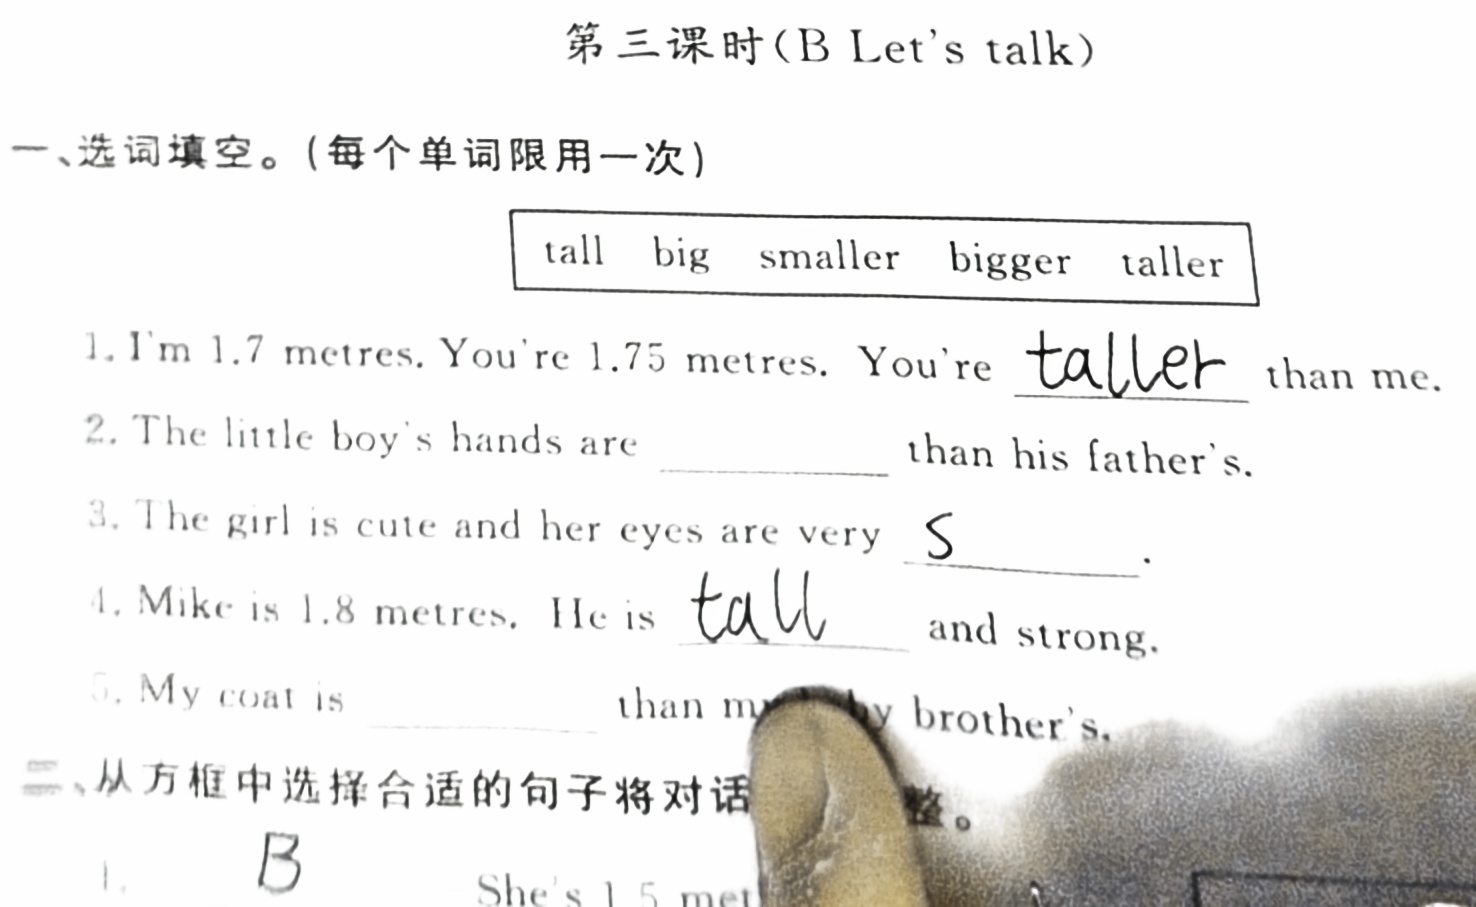 第三课时(B Let's talk)
一、选词填空。(每个单词限用一次)
tall big smaller bigger taller
1. I'm 1.7 metres. You're 1.75 metres. You're taller than me.
2. The little boy's hands are ________ than his father's.
3. The girl is cute and her eyes are very S________.
4. Mike is 1.8 metres. He is tall and strong.
5. My coat is ________ than brother's.
二、从方框中选择合适的句子将对话 整。
1. B She's 1.5